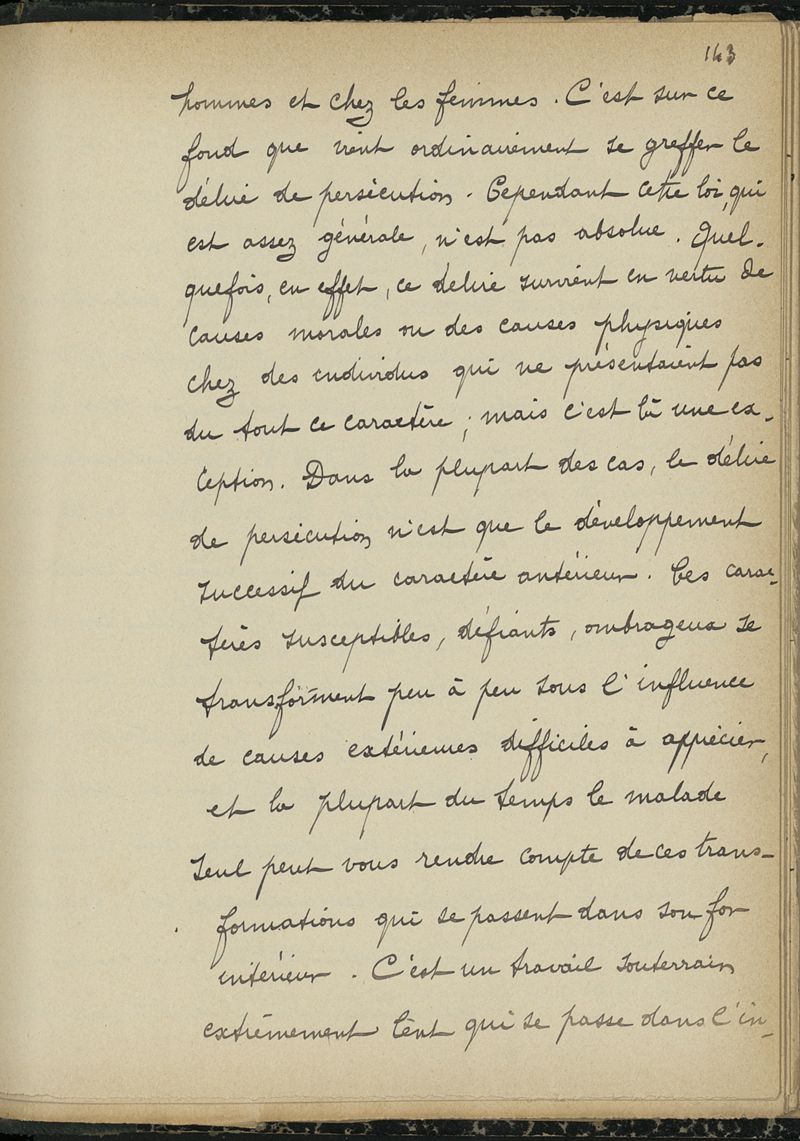 143
hommes et chez les femmes. C'est sur ce
fond que vient ordinairement se greffer le
délire de persécution. Cependant cette loi, qui
est assez générale, n'est pas absolue. Quel-
quefois, en effet, ce délire survient en vertu de
causes morales ou des causes physiques
chez des individus qui ne présentaient pas
du tout ce caractère ; mais c'est là une ex-
ception. Dans la plupart des cas, le délire
de persécution n'est que le développement
successif du caractère antérieur. Ces carac-
tères susceptibles, défiants, ombrageux se
transforment peu à peu sous l'influence
de causes extérieures difficiles à apprécier,
et la plupart du temps le malade
seul peut vous rendre compte de ces trans-
formations qui se passent dans son for
intérieur. C'est un travail souterrain
extrêmement lent qui se passe dans l'in-